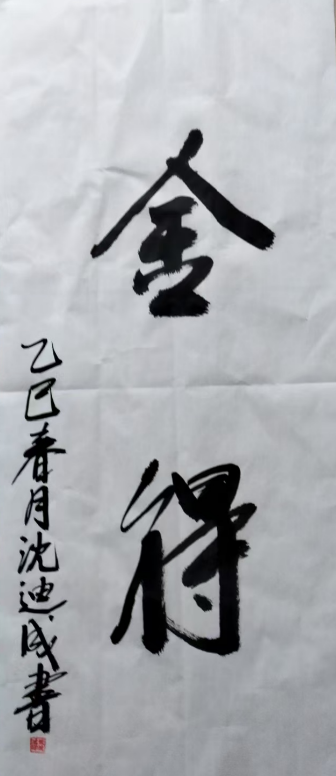 舍得
乙巳春月沈迪成書